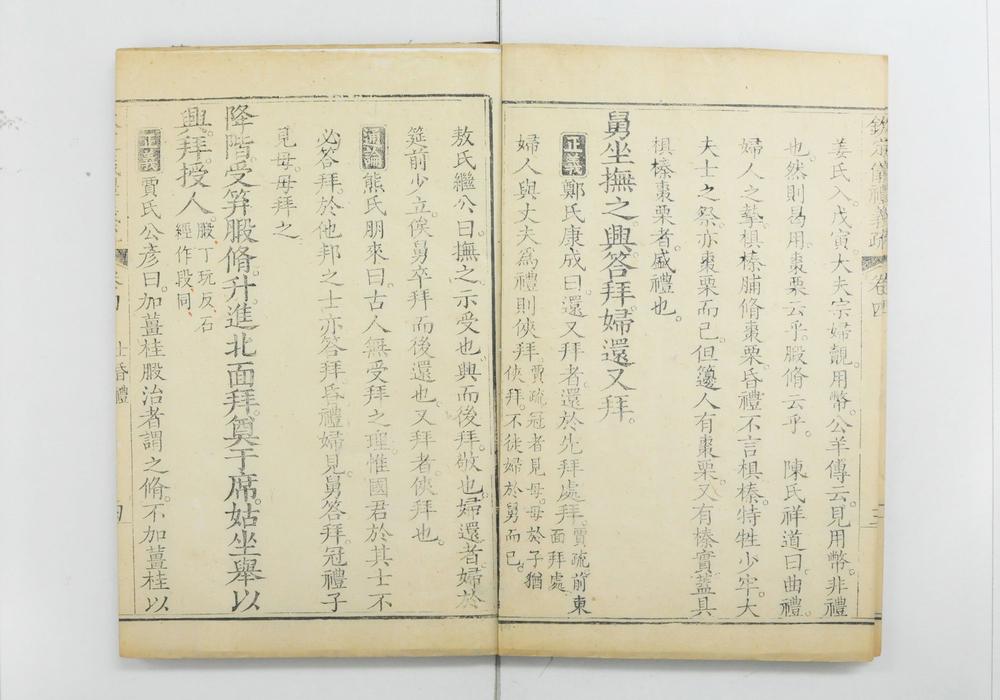 欽定儀禮義疏 卷四
姜氏入戊寅大夫宗婦覿。用幣。公羊傳云。見用幣。非禮
也。然則曷用。棗栗云乎。腶脩云乎。 陳氏祥道曰。曲禮
婦人之摯。椇榛脯脩棗栗。昏禮不言椇榛。特牲少牢。大
夫士之祭。亦棗栗而已。但籩人有棗栗。又有榛實。蓋具
椇榛棗栗者。盛禮也。
舅坐撫之。興。答拜。婦還又拜。
正義 鄭氏康成曰。還又拜者。還於先拜處拜。賈疏前東面拜處
婦人與丈夫爲禮則俠拜。賈疏冠者見母。母於子猶俠拜。不徒婦於舅而已。
敖氏繼公曰。撫之。示受也。興而後拜。敬也。婦還者。婦於
筵前少立。俟舅卒拜而後還也。又拜者。俠拜也。
通論 熊氏朋來曰。古人無受拜之理。惟國君於其士不
必答拜。於他邦之士亦答拜。昏禮婦見。舅答拜。冠禮子
見母。母拜之
降階受笲腶脩。升進北面拜。奠于席。姑坐舉以
興。拜。授人。腶丁玩反。石經作段同。
正義 賈氏公彥曰。加薑桂腶治者謂之脩。不加薑桂以
士昏禮